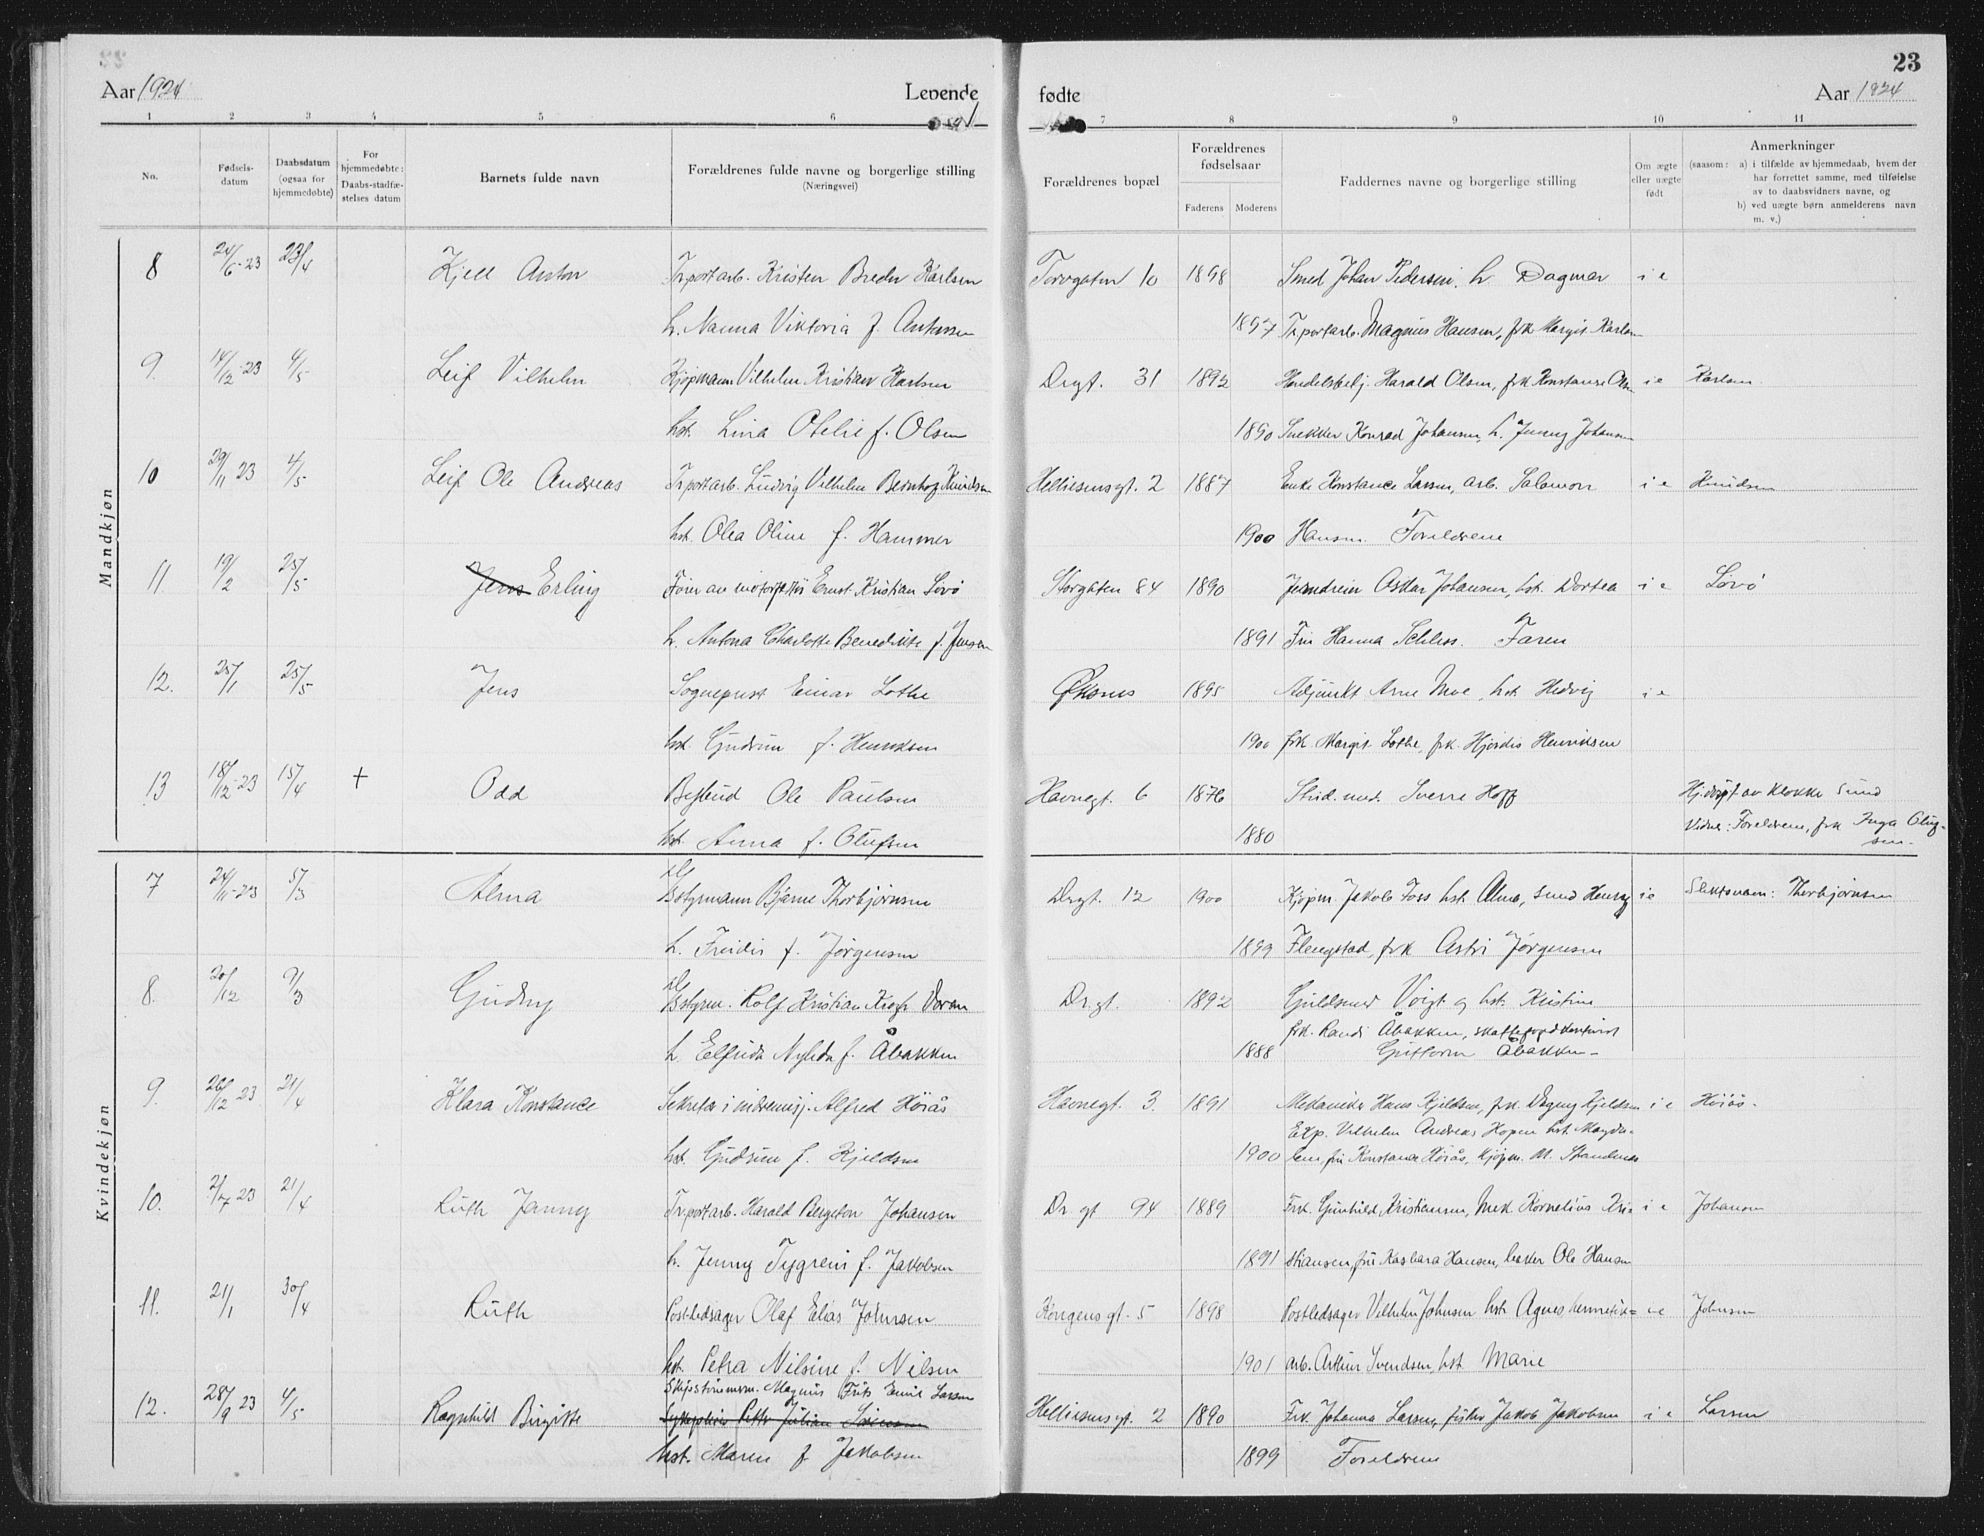 23
Aar 1924 Levende
fødte Aar 1924
1 2 3 4 5 6
7 8 9 10 11
No.
Fødsels-
datum
Daabsdatum
(ogsaa for
hjemmedøbte)
For
hjemmedøbte:
Daabs-stadfæ-
stelses datum
Barnets fulde navn
Forældrenes fulde navne og borgerlige stilling
(Næringsvei)
Forældrenes bopæl
Forældrenes
fødselsaar
Faderens Moderens
Faddernes navne og borgerlige stilling
Om ægte
eller uægte
født
Anmerkninger
(saasom: a) i tilfælde av hjemmedaab, hvem der
har forrettet samme, med tilføielse
av to daabsvidners navne, og
b) ved uægte børn anmelderens navn
m. v.)
Mandkjøn
8 24/6-23 23/4 Kjell Anton Tr.portarb. Kristen Breder Karlsen Torvgaten 10 1898 Smed Johan Pedersen, h. Dagmar i e
h. Nanna Viktoria f. Antonsen 1897 Tr.portarb. Magnus Hansen, frk Margit Karlsen
9. 14/12-23 4/5 Leif Vilhelm Kjøpmann Vilhelm Kristian Karlsen Drgt. 31 1892 Handelsbetj. Harald Olsen, frk Konstanse Olsen i e Karlsen
hst. Lina Otelie f. Olsen 1890 Snekker Konrad Johansen, h. Jenny Johansen
10 29/11 23 4/5 Leif Ole Andreas Tr.portarb. Ludvig Vilhelm Knudsen Helliesensgt. 2 1887 Enke Konstance Larsen, arb. Salomon i e Knudsen
hst. Olea Oline f. Hammer 1900 Hansen. Foreldrene
11. 19/2 25/5 Jens Erling Fører av motorskøi Ernst Kristian Lövö Storgaten 84 1890 Jerndreier Oskar Johansen, hst. Dortea i e Lövö
h. Antona Charlotte Benedikte f. Jensen 1891 Fru Hanna Schless. Faren
12. 25/1 25/5 Jens Sogneprest Einar Lothe Øksnes 1895 Adjunkt Arne Moe, hst. Hedvig i e
hst. Gudrun f. Henriksen 1900 frk. Margit Lothe, frk. Hjördis Henriksen
13 18/12-23 15/4 + Odd Bybud Ole Paulsen Havnegt. 6 1876 Stud. med. Sverre Hoff Hj.døpt av klokker Sund
hst. Anna f. Olufsen 1880 Vidner: Foreldrene, frk Inga Oluf-
sen.
Kvindekjøn
7 24/11-23 5/3 Alma Bstyrmann Bjarne Thorbjørnsen Drgt. 12 1900 Kjøpm. Jakob Foss hst. Alma, smed Henry i e Slektsnavn: Thorbjørnsen
h. Freidis f. Jørgensen 1899 Flengstad, frk Astri Jørgensen
8. 20/12 9/3 Gudny Bstyrm. Rolf Kristian Doran Dr.gt. 1892 Guldsmed Voigt og hst. Kristine
frk. Randi Åbakken, skattefogdkontorist
h. Elfrida f. Åbakken 1888 Guttorm Åbakken
9. 26/12 23 21/4 Klara Konstance Sekretær i indremisj. Alfred Höiås Havnegt. 3. 1891 Mekaniker Hans Kjeldsen, frk. Dagny Kjeldsen i e Höiås.
Exp. Vilhelm Andreas Hopen hst. Magda-
hst. Gudrun f. Kjeldsen 1900 lene, fru Konstance Höiås, kjøpm. M. Strandenes
10. 2/7 23 21/4 Ruth Janny Tr.portarb. Harald Bergeton Johansen Dr.gt 94 1889 Frk. Gunhild Kristiansen, Mek Kornelius Kri- i e Johansen
h. Jenny f. Jakobsen 1891 stiansen, fru Kasbara Hansen, Ole Hansen
11. 21/1 30/4 Ruth Postledsager Olaf Elias Johnsen Kongensgt. 5 1898 Postledsager Vilhelm Johnsen hst. Agnes i e Johnsen
hst. Petra Nilsine f. Nilsen 1901 arb. Arthur Svendsen, hst Marie
12. 28/9 23 4/5 Ragnhild Birgitte Skipstømmerm. Magnus Frits Emil Larsen Helliesensgt. 2 1890 Frk. Johanna Larsen, fisker Jakob Jakobsen i e Larsen
hst. Maren f Jakobsen 1899 Foreldrene